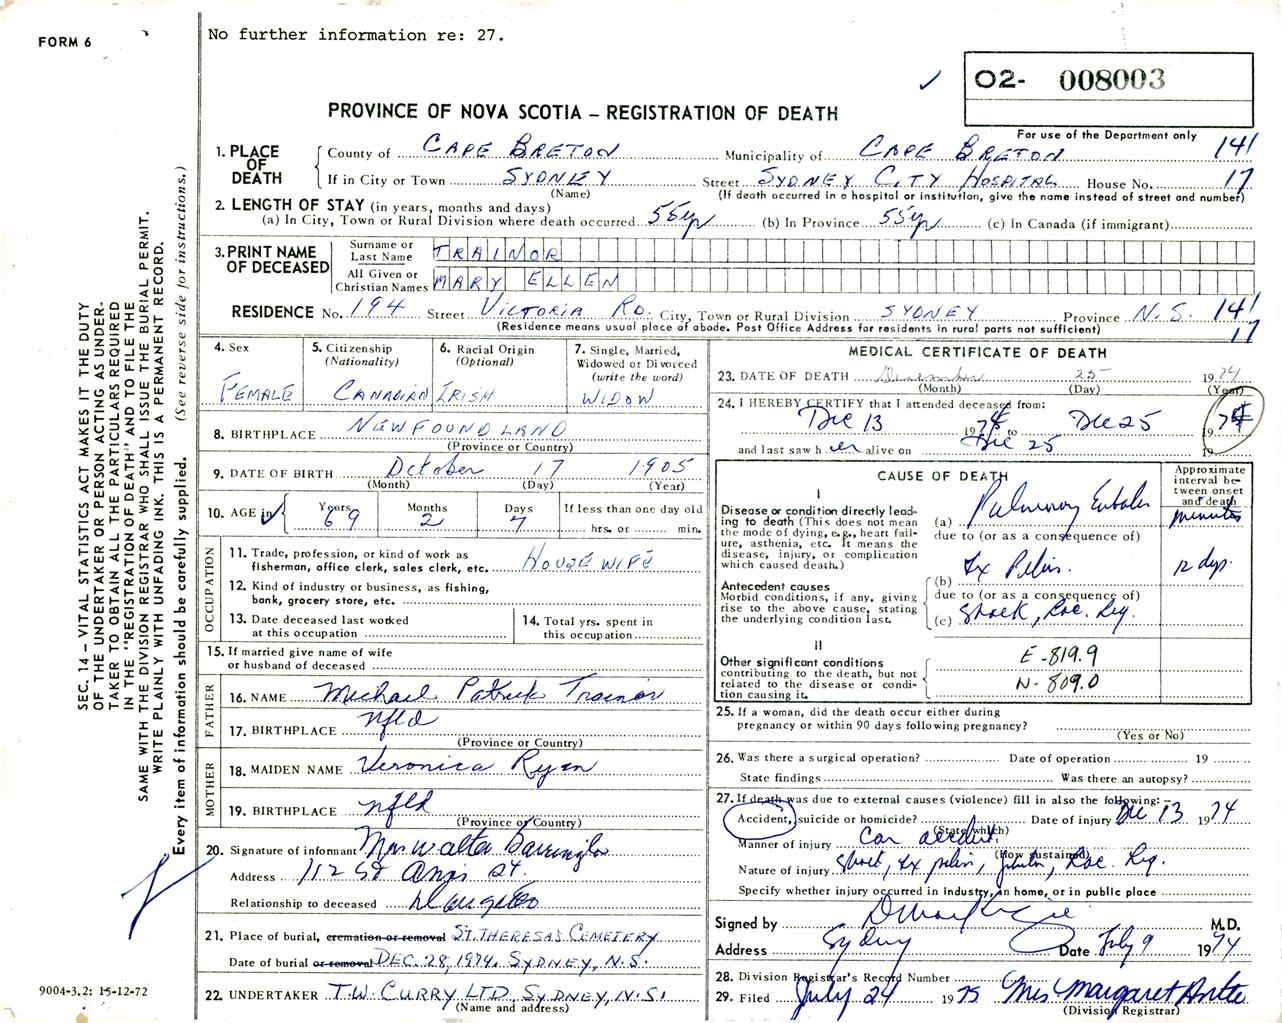 FORM 6
No further information re: 27.
O2- 008003
PROVINCE OF NOVA SCOTIA – REGISTRATION OF DEATH
For use of the Department only
1. PLACE OF DEATH
County of CAPE BRETON Municipality of CAPE BRETON 141
If in City or Town SYDNEY Street SYDNEY CITY HOSPITAL House No. 17
(Name) (If death occurred in a hospital or institution, give the name instead of street and number)
2. LENGTH OF STAY (in years, months and days)
(a) In City, Town or Rural Division where death occurred 55 yr (b) In Province 55 yr (c) In Canada (if immigrant)
3. PRINT NAME OF DECEASED
Surname or Last Name TRAINOR
All Given or Christian Names MARY ELLEN
RESIDENCE No. 194 Street VICTORIA RD. City, Town or Rural Division SYDNEY Province N.S. 141
(Residence means usual place of abode. Post Office Address for residents in rural parts not sufficient) 17
4. Sex
FEMALE
5. Citizenship
(Nationality)
CANADIAN
6. Racial Origin
(Optional)
IRISH
7. Single, Married,
Widowed or Divorced
(write the word)
WIDOW
8. BIRTHPLACE NEWFOUNDLAND
(Province or Country)
9. DATE OF BIRTH October 17 1905
(Month) (Day) (Year)
10. AGE in Years 69 Months 2 Days 7 If less than one day old
hrs. or min.
OCCUPATION
11. Trade, profession, or kind of work as
fisherman, office clerk, sales clerk, etc. HOUSEWIFE
12. Kind of industry or business, as fishing,
bank, grocery store, etc.
13. Date deceased last worked
at this occupation
14. Total yrs. spent in
this occupation
15. If married give name of wife
or husband of deceased
FATHER
16. NAME Michael Patrick Trainor
17. BIRTHPLACE Nfld
(Province or Country)
MOTHER
18. MAIDEN NAME Veronica Ryan
19. BIRTHPLACE Nfld
(Province or Country)
20. Signature of informant Mrs Walter
Address 112 St Anns St.
Relationship to deceased
21. Place of burial, cremation or removal ST. THERESA'S CEMETERY
Date of burial or removal DEC. 28, 1974. SYDNEY, N.S.
22. UNDERTAKER T.W. CURRY LTD, SYDNEY, N.S.
(Name and address)
MEDICAL CERTIFICATE OF DEATH
23. DATE OF DEATH December 25 1974
(Month) (Day) (Year)
24. I HEREBY CERTIFY that I attended deceased from:
Dec 13 1974 to Dec 25 1974
and last saw h er alive on Dec 25 19
CAUSE OF DEATH
Approximate
interval be-
tween onset
and death
I
Disease or condition directly lead-
ing to death (This does not mean
the mode of dying, e.g., heart fail-
ure, asthenia, etc. It means the
disease, injury, or complication
which caused death.)
(a) Pulmonary minutes
due to (or as a consequence of)
Antecedent causes
Morbid conditions, if any, giving
rise to the above cause, stating
the underlying condition last.
(b) Fx Pelvis. 12 days
due to (or as a consequence of)
(c) Shock,
II
Other significant conditions
contributing to the death, but not
related to the disease or condi-
tion causing it.
E-819.9
N-809.0
25. If a woman, did the death occur either during
pregnancy or within 90 days following pregnancy?
(Yes or No)
26. Was there a surgical operation? Date of operation 19
State findings Was there an autopsy?
27. If death was due to external causes (violence) fill in also the following:
Accident, suicide or homicide? Date of injury Dec 13 1974
(State which)
Manner of injury car accident
(How sustained)
Nature of injury Shock, Fx pelvis,
Specify whether injury occurred in industry, in home, or in public place
Signed by M.D.
Address Sydney Date July 9 1974
28. Division Registrar's Record Number
29. Filed July 24 1975 Mrs Margaret
(Division Registrar)
SEC. 14 – VITAL STATISTICS ACT MAKES IT THE DUTY
OF THE UNDERTAKER OR PERSON ACTING AS UNDER-
TAKER TO OBTAIN ALL THE PARTICULARS REQUIRED
IN THE "REGISTRATION OF DEATH" AND TO FILE THE
SAME WITH THE DIVISION REGISTRAR WHO SHALL ISSUE THE BURIAL PERMIT.
WRITE PLAINLY WITH UNFADING INK. THIS IS A PERMANENT RECORD.
Every item of information should be carefully supplied. (See reverse side for instructions.)
9004-3.2: 15-12-72